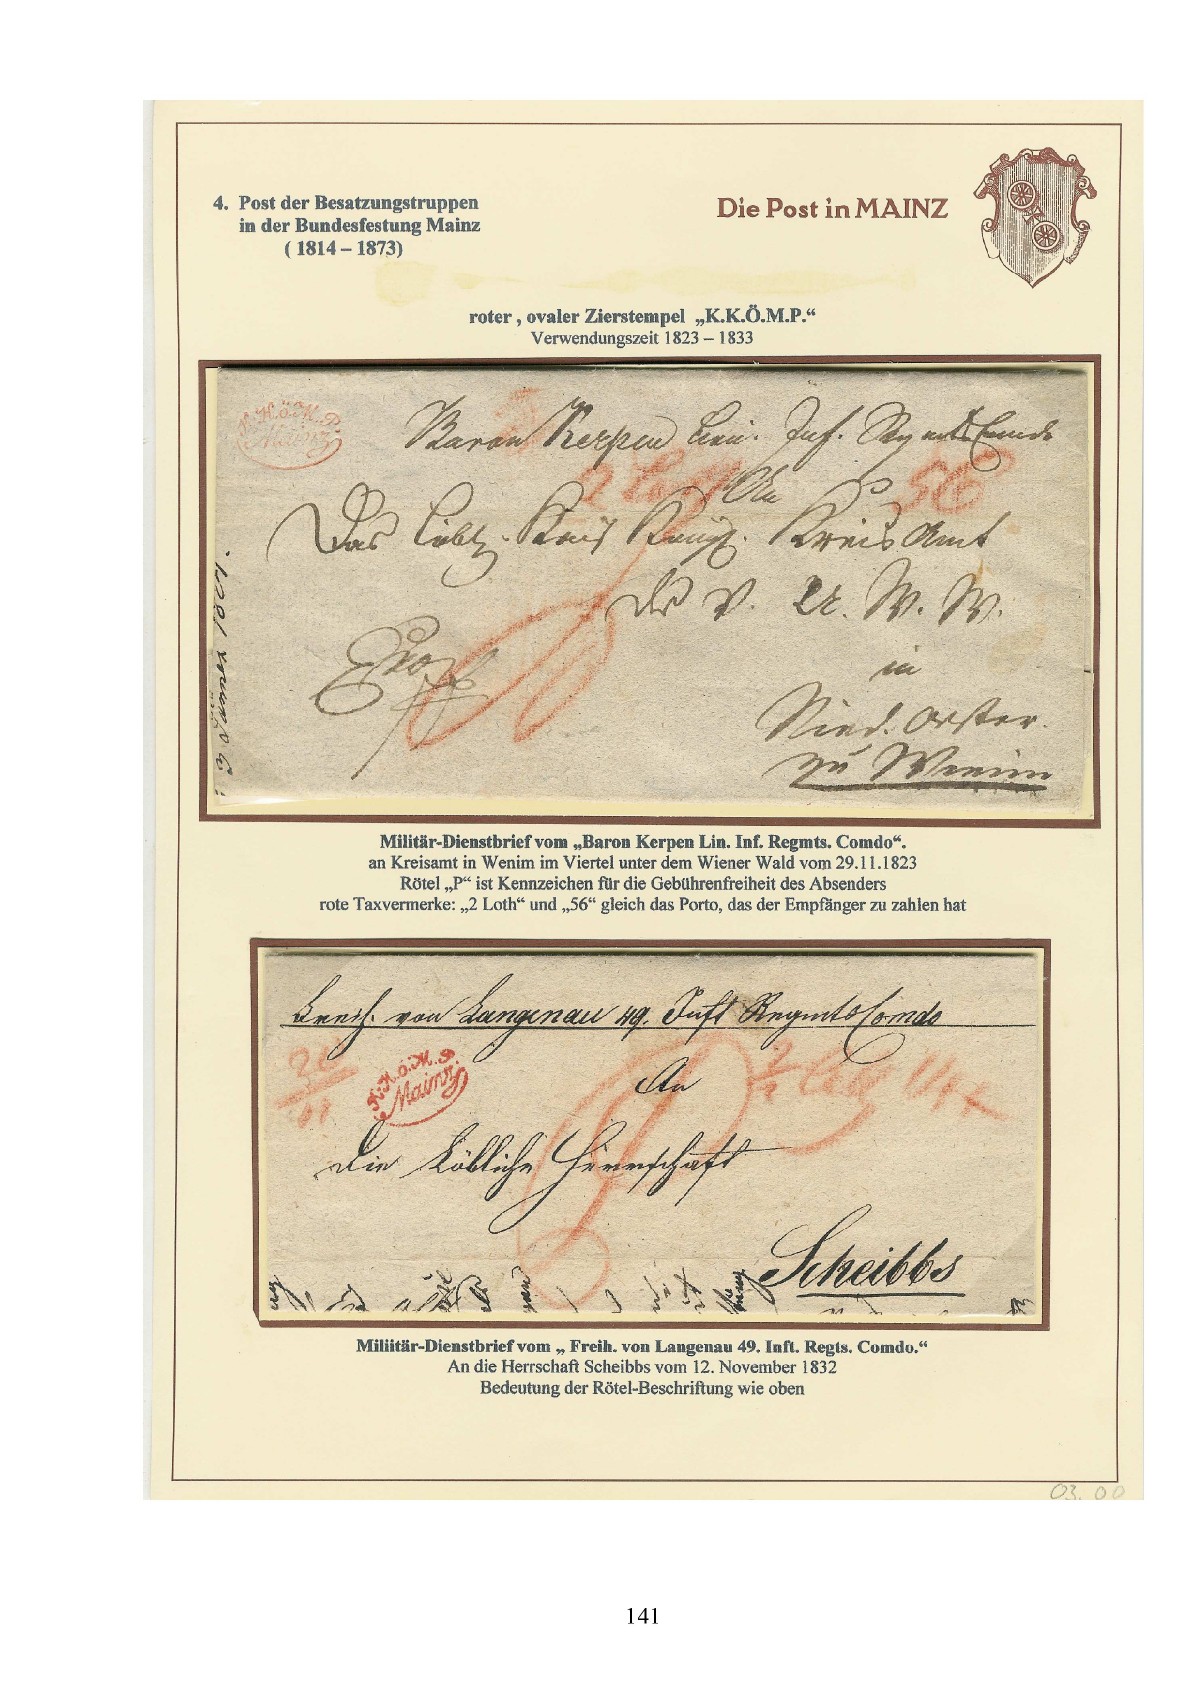 4. Post der Besatzungstruppen
in der Bundesfestung Mainz
( 1814 – 1873)
Die Post in MAINZ
roter , ovaler Zierstempel „K.K.Ö.M.P.“
Verwendungszeit 1823 – 1833
K.K.ö.M.P.
Mainz
Baron Kerpen Lin. Inf. Regmts Comdo
2 Loth 56
An
Das Löbl. Kais. Königl. Kreis Amt
des V. U. W. W.
in
Nied. Oester.
zu Wenim
Militär-Dienstbrief vom „Baron Kerpen Lin. Inf. Regmts. Comdo“.
an Kreisamt in Wenim im Viertel unter dem Wiener Wald vom 29.11.1823
Rötel „P“ ist Kennzeichen für die Gebührenfreiheit des Absenders
rote Taxvermerke: „2 Loth“ und „56“ gleich das Porto, das der Empfänger zu zahlen hat
Freih. von Langenau 49. Inft Regmts Comdo
K.K.ö.M.P.
Mainz
An
Die Löbliche Herrschaft
Scheibbs
Miliitär-Dienstbrief vom „ Freih. von Langenau 49. Inft. Regts. Comdo.“
An die Herrschaft Scheibbs vom 12. November 1832
Bedeutung der Rötel-Beschriftung wie oben
03.00
141